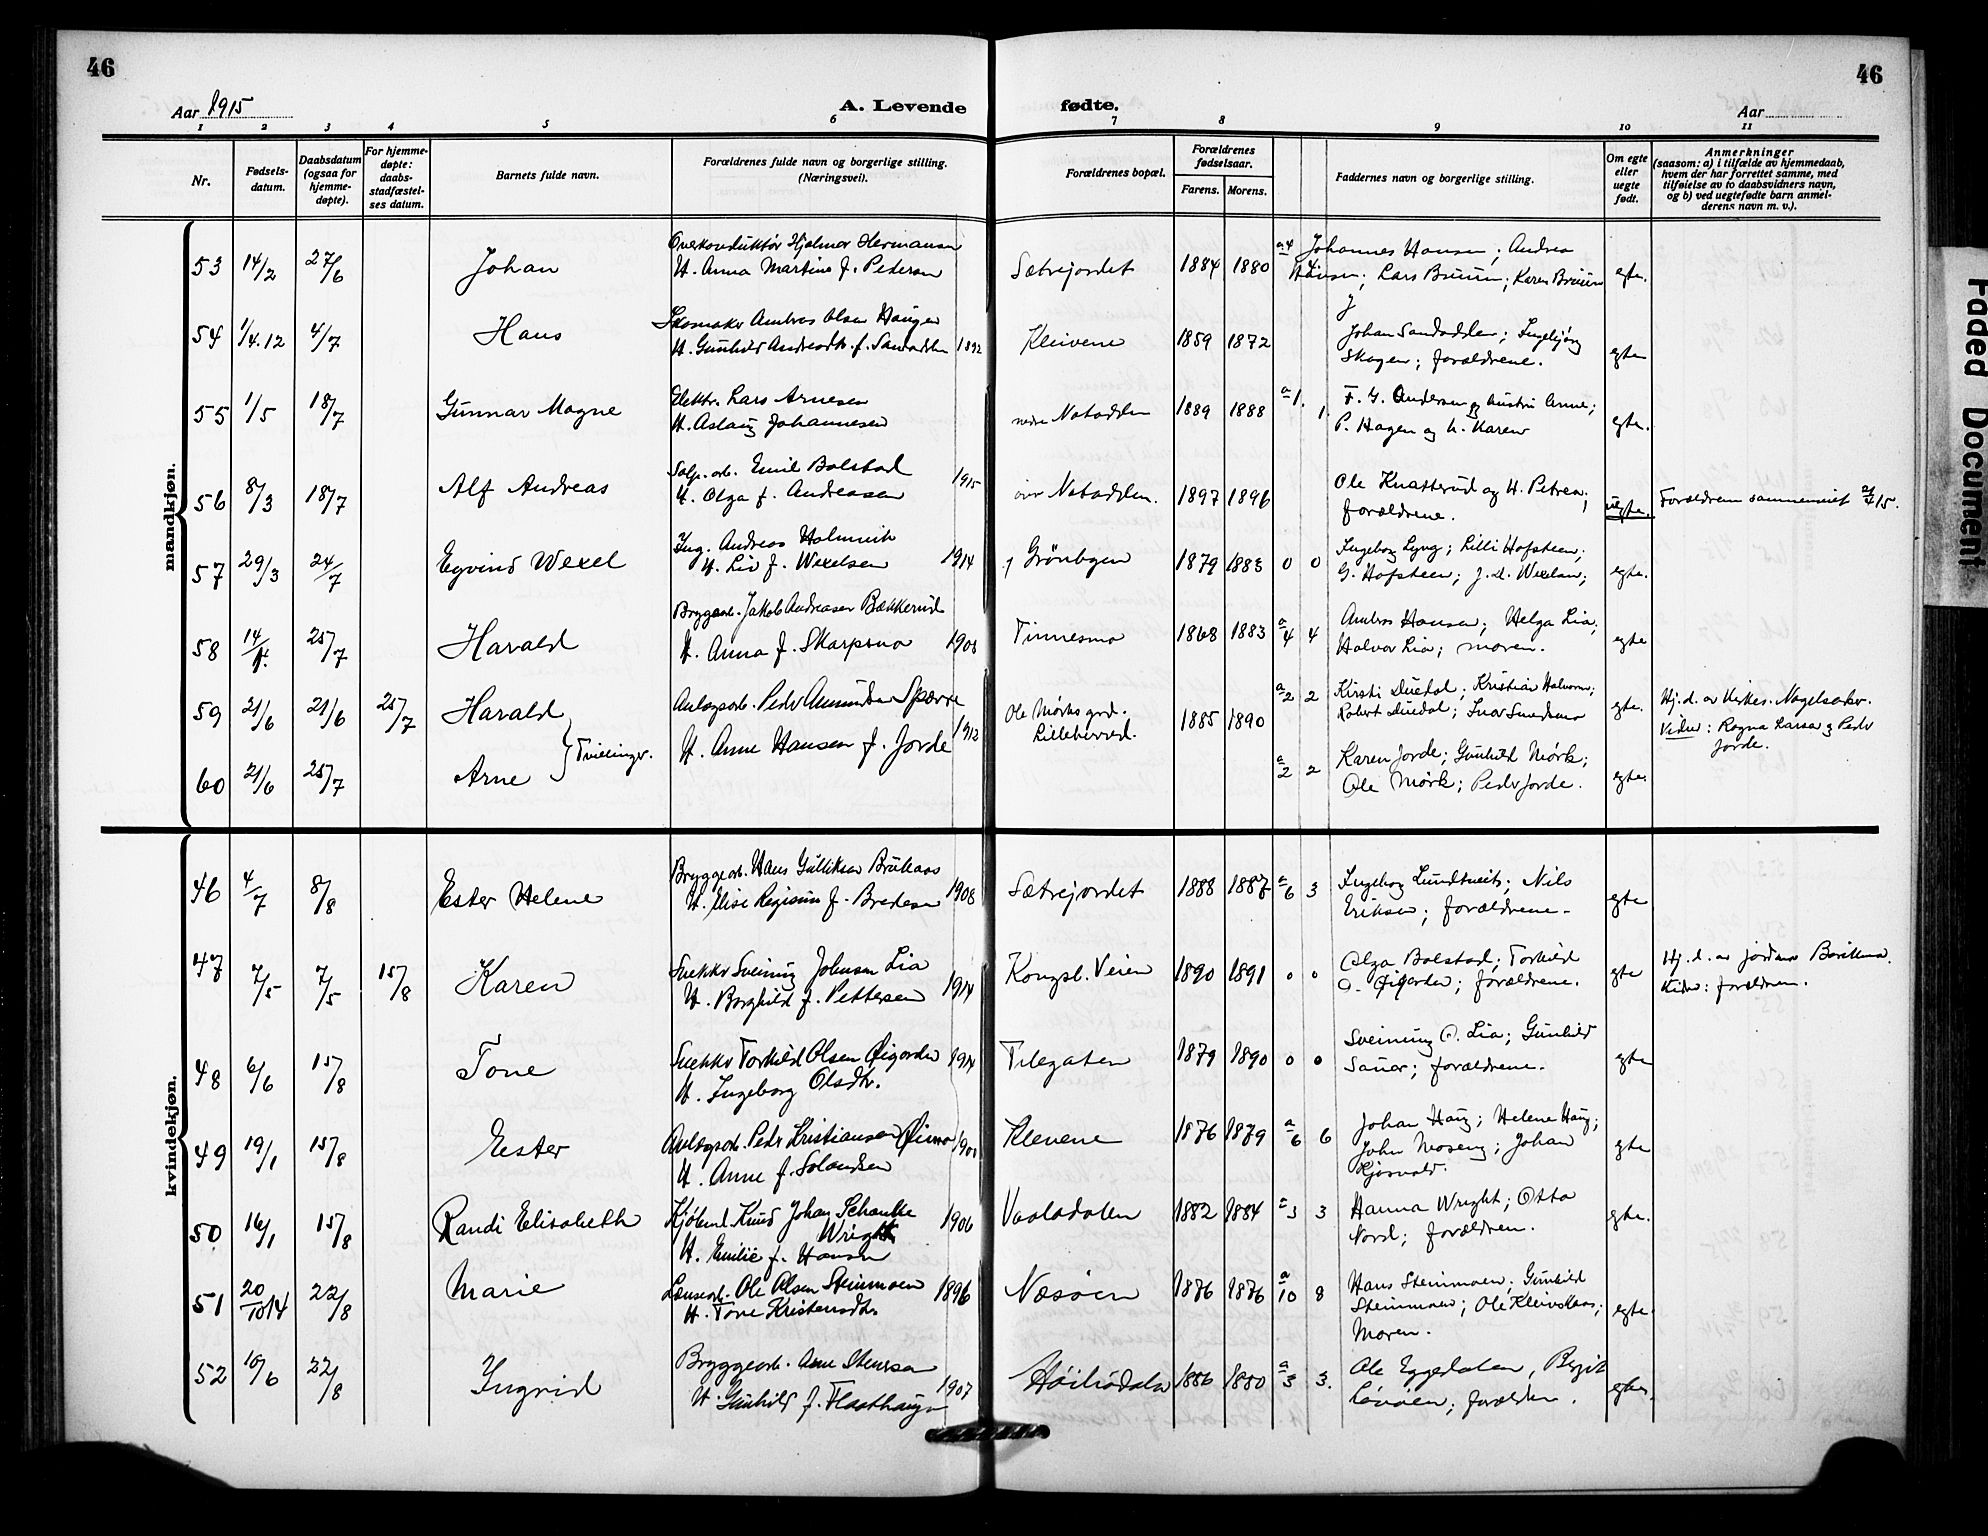 46
46
Aar 1915
A. Levende
fødte.
Aar
1 2 3 4 5 6 7 8 9 10 11
Nr.
Fødsels-
datum.
Daabsdatum
(ogsaa for
hjemme-
døpte).
For hjemme-
døpte:
daabs-
stadfæstel-
ses datum.
Barnets fulde navn.
Forældrenes fulde navn og borgerlige stilling.
(Næringsvei).
Forældrenes bopæl.
Forældrenes
fødselsaar.
Farens. Morens.
Faddernes navn og borgerlige stilling.
Om egte
eller
uegte
født.
Anmerkninger
(saasom: a) i tilfælde av hjemmedaab,
hvem der har forrettet samme, med
tilføielse av to daabsvidners navn,
og b) ved uegtefødte barn anmel-
derens navn m. v.).
mandkjøn.
53 14/2 27/6 Johan
Overkonduktør Hjalmar Hermansen
H. Anna Martine f. Pedersen
Sætrejordet 1884 1880 a 4 4
Johannes Hansen; Andrea
Hansen; Lars Bruun; Karen Bruun
egte.
54 1/4.12 4/7 Hans
Skomaker Ambros Olsen Haugen
H. Gunhild Andreasdtr. f. Sandodden 1892
Kleivene 1859 1872
Johan Sandodden; Ingebjørg
Skogen; forældrene.
egte
55 1/5 18/7 Gunnar Magne
Elektr. Lars Arnesen
H. Aslaug Johannesen
nedre Notodden 1889 1888 a 1. 1.
F. G. Andersen og hustru Anne;
P. Hagen og h. Karen
egte.
56 8/3 18/7 Alf Andreas
Salp. arb. Emil Bolstad 1915
H. Olga f. Andreasen
øvre Notodden. 1897 1896
Ole Knatterud og H. Petrea;
forældrene.
uegte.
Forældrene sammenviet 15.
57 29/3 24/7 Eyvind Wexel
Ing. Andreas Holmvik
H. Liv f. Wexelsen 1914
Grønbyen 1879 1883 0 0
Ingeborg Lyng; Lilli Hofsteen;
G. Hofsteen; J. A. Wexelsen;
egte.
58 14/4. 25/7 Harald
Bryggearb. Jakob Andreasen Bækkerud
H. Anna f. Skarpsno 1908
Tinnesmo 1868 1883 a 4 4
Ambros Hansen; Helga Lia;
Halvor Lia; moren.
egte
59 21/6 21/6 25/7 Harald
Anlægsarb. Peder Amundsen Sparre 1912
H. Anne Hansen f. Jorde
Ole Mørks grd.
Lilleherred. 1885 1890 a 2 2
Kirsti Duedal; Kristian Halvorsen;
Robert Duedal; Ivar Smedsmo
egte.
Hj. d. av Kirkes. Nagelsaker.
Vidner: Ragna Larsen og Peder
Jorde.
Tvillinger.
60 21/6 25/7 Arne
a 2 2
Karen Jorde; Gunhild Mørk;
Ole Mørk; Peder Jorde.
egte.
kvindekjøn.
46 4/7 8/8 Ester Helene
Bryggearb. Hans Gulliksen Bruhaas
H. Elise Regine f. Bredesen 1908
Sætrejordet 1888 1887 a 6 3
Ingeborg Lundtveit; Nils
Eriksen; forældrene.
egte
47 7/5 7/5 15/8 Karen
Snekker Sveinung Johnsen Lia
H. Borghild f. Pettersen 1914
Kongsb. Veien 1890 1891 0 0
Olga Bolstad; Torkild
O. Øigarden; forældrene.
egte
Hj. d. av jordmor
Vidner: forældrene.
48 6/6 15/8 Tone
Snekker Torkild Olsen Øigarden 1914
H. Ingeborg Olsdtr.
Telegaten 1879 1890 0 0
Sveinung O. Lia; Gunhild
Sauar; forældrene.
egte
49 19/1 15/8 Ester
Anlægsarb. Peder Kristiansen
H. Anne f. Solandsen
Klevene 1876 1879 a 6 6
Johan Haug; Helene Haug;
John Moseng; Johan
Kjosvold.
egte
50 16/1 15/8 Randi Elisabeth
Kjøbmd. Knud Johan Schanke 1906
Wright
H. Emilie f. Hansen
Vaaladalen 1882 1884 a 3 3
Hanna Wright; Otto
Nord; forældrene.
egte.
51 20/10 14 22/8 Marie
Lænsearb. Ole Olsen Steinmoen 1896
H. Tone Kristensdtr.
Næsøen 1876 1876 a 10 8
Hans Steinmoen; Gunhild
Steinmoen; Ole Kleivstaas;
Moren.
egte.
52 10/6 22/8 Ingrid
Bryggearb. Arne Stenersen
H. Gunhild f. Flaathaugen 1907
Høibødalen 1886 1880 a 3 3.
Ole Eggedalen, Bergit
forældrene.
egte.
Faded Document